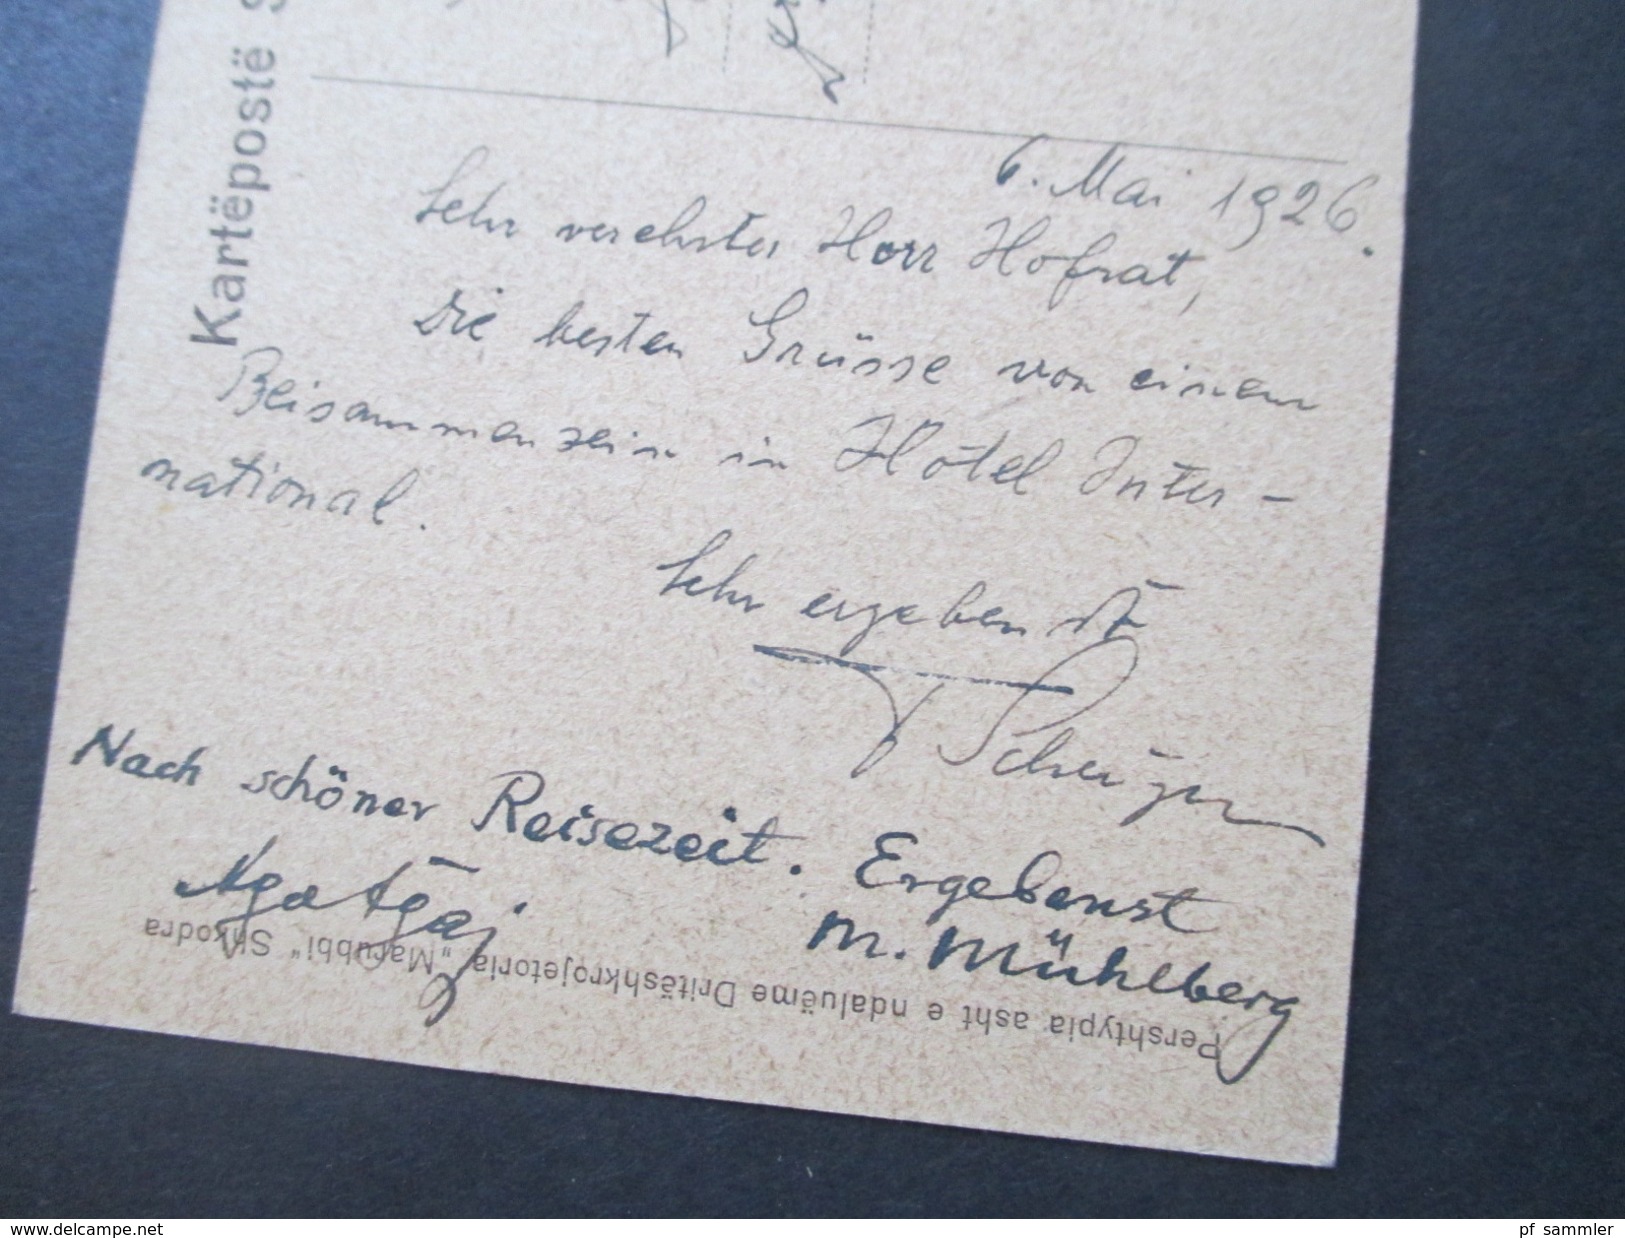 Kartëpostë
6. Mai 1926.
Sehr verehrter Herr Hofrat,
Die besten Grüsse von einem
Beisammensein in Hotel Inter-
national.
Sehr ergebenst
Nach schöner Reisezeit. Ergebenst
M. Mühlberg
Pershtypia asht e ndaluëme Dritëshkrojetoria „Marubbi" Shkodra
www.delcampe.net
pf_sammler